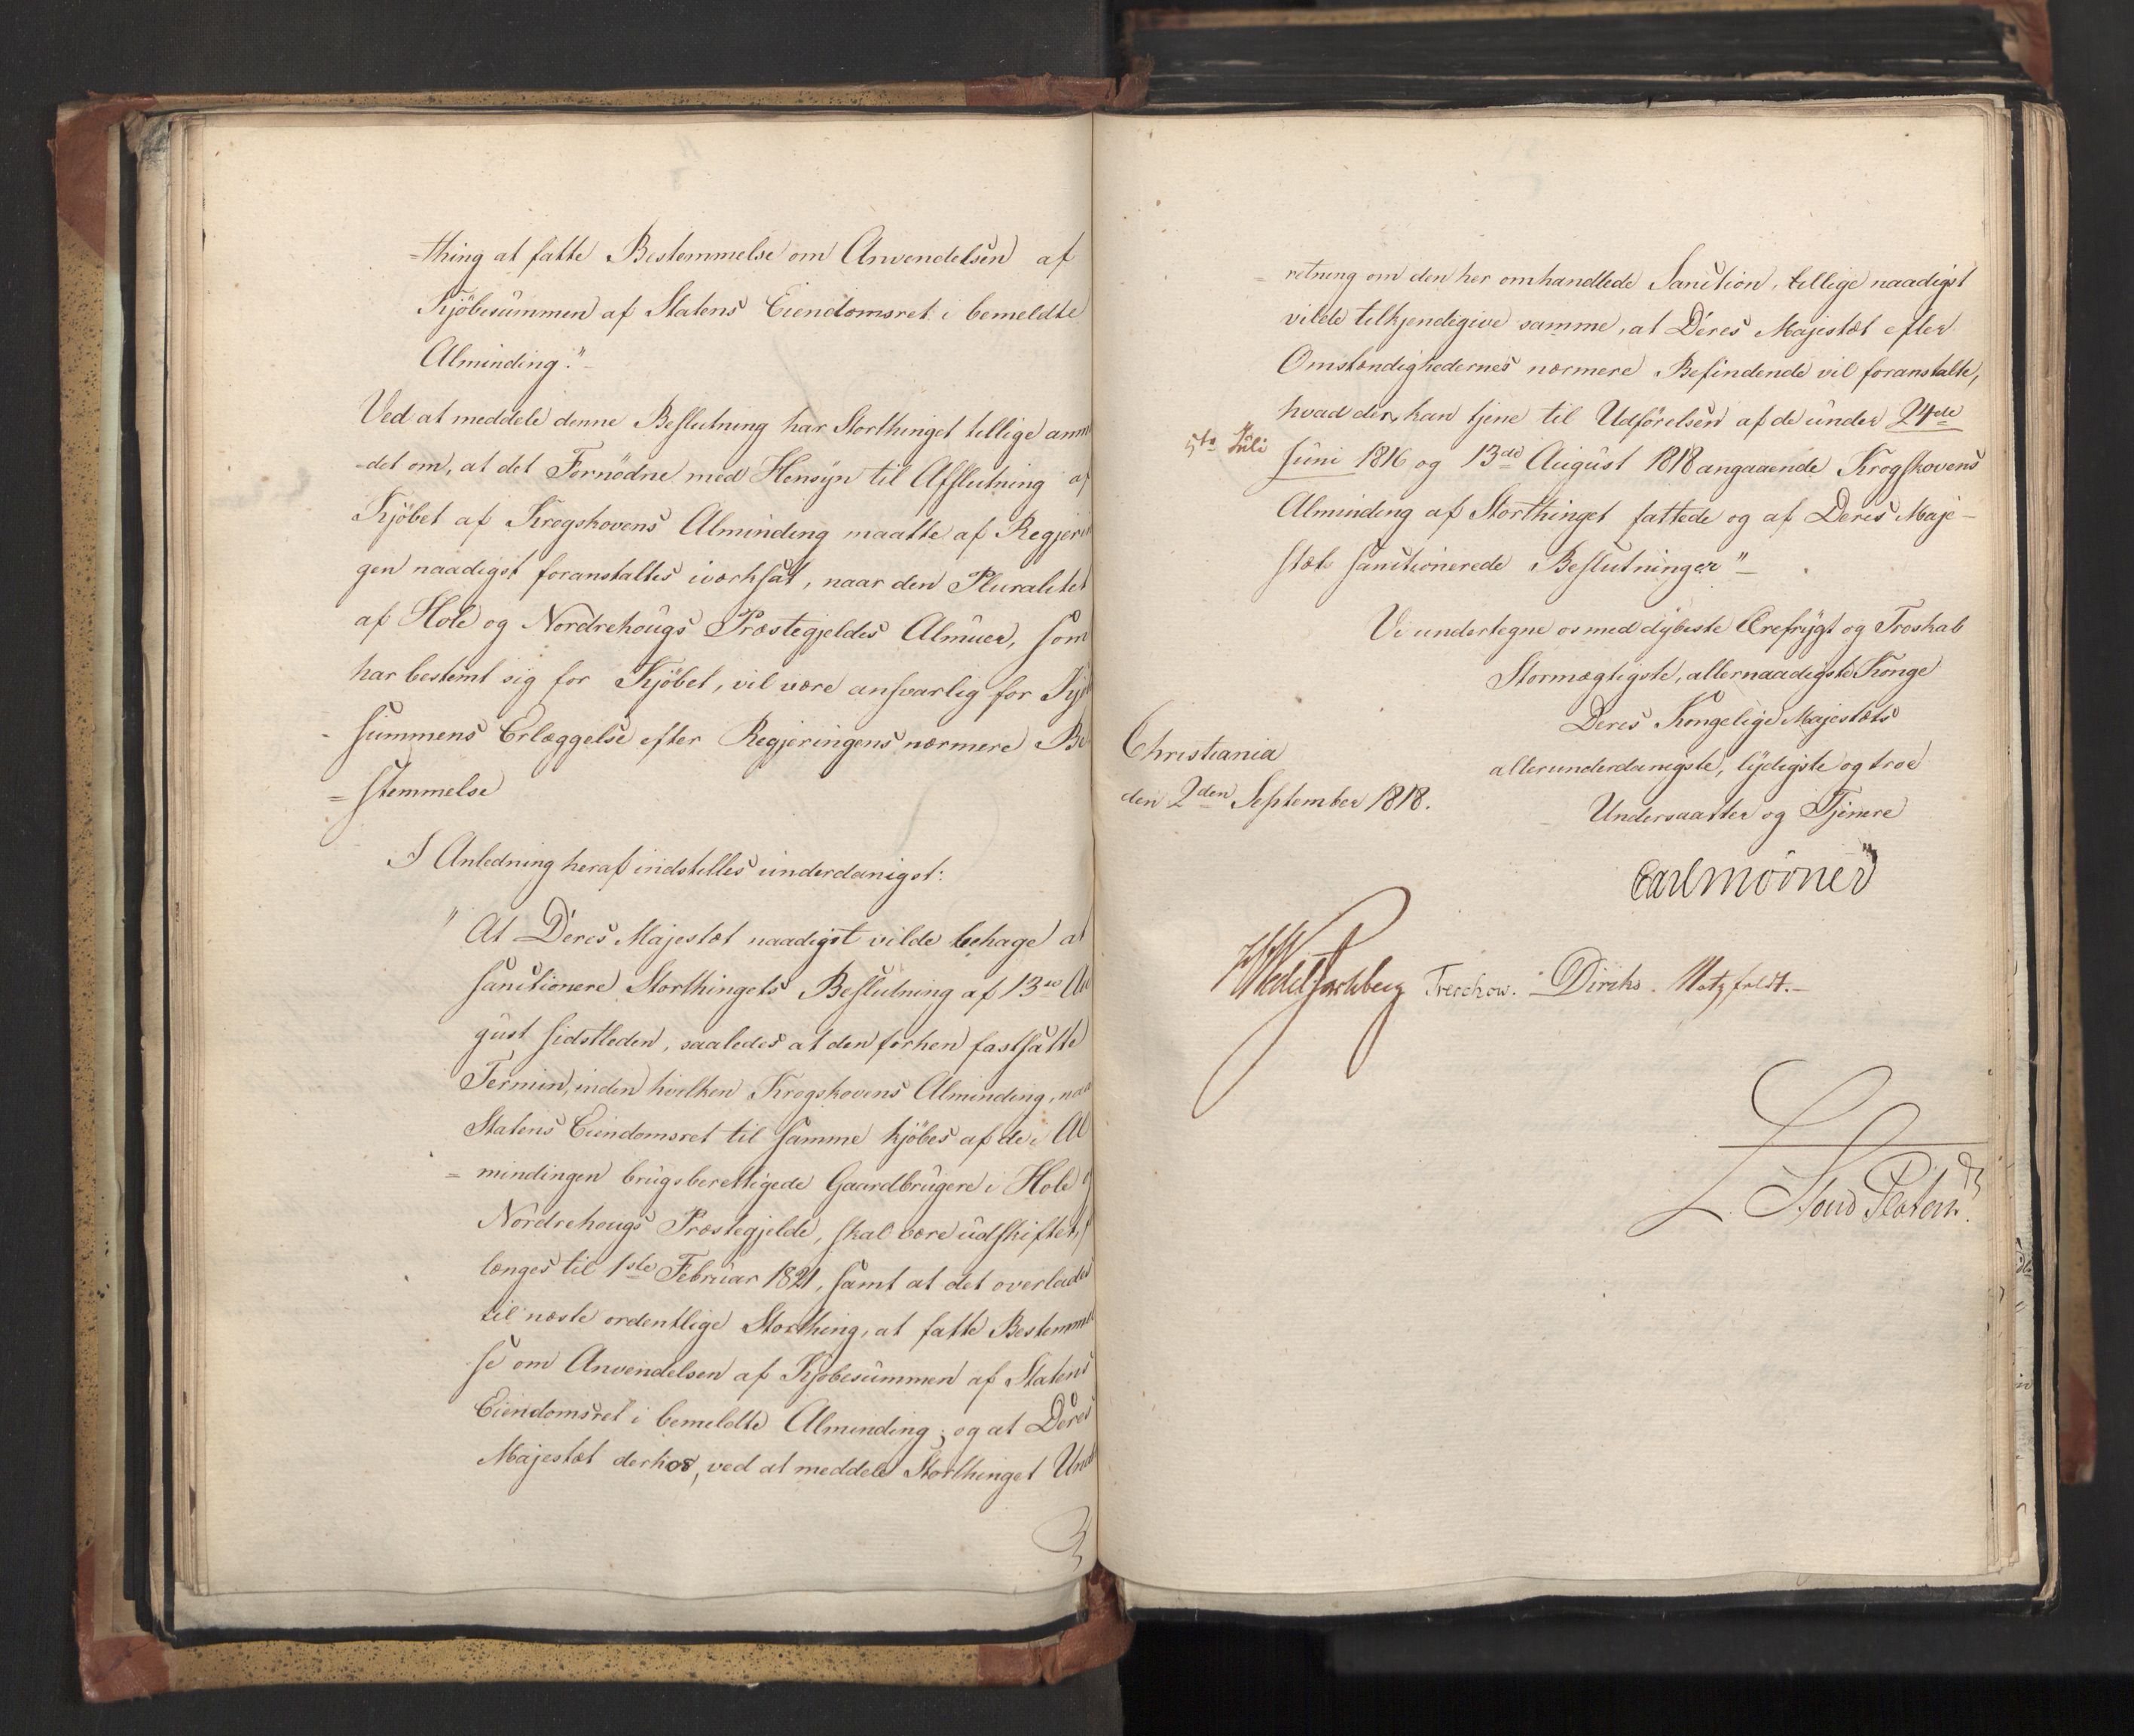 =thing at fatte Bestemmelse om Anvendelsen af
Kjöbesummen af Statens Eiendomsret i bemeldte
Alminding."
Ved at meddele denne Beslutning har Storthinget tillige anm
det om, at det Fornödne med Hensyn til Afslutning af
Kjöbet af Krogskovens Alminding maatte af Regjerin
gen naadigst foranstaltes iværksat, naar den Pluralitet
af Hole og Nordrehougs Præstegjeldes Almuer, som
har bestemt sig for Kjöbet, vil være ansvarlig for Kjö
summens Erlæggelse efter Regjeringens nærmere Be
=stemmelse
I Anledning heraf indstilles underdanigst:
" At Deres Majestæt naadigst vilde behage at
sanctionere Storthingets Beslutning af 13de Au
gust sidstleden, saaledes at den forhen fastsatte
Termin, inden hvilken Krogskovens Alminding, naar
Statens Eiendomsret til samme kjöbes af de i Al
=mindingen brugsberettigede Gaardbrugere i Hole og
Nordrehougs Præstegjelde, skal være udskiftet, f
længes til 1ste Februar 1821, samt at det overlades
til næste ordentlige Storthing, at fatte Bestemmel
se om Anvendelsen af Kjöbesummen af Statens
Eiendomsret i bemeldte Alminding; og at Deres
Majestæt derhos, ved at meddele Storthinget Und
=retning om den her omhandlede Sanction, tillige naadigst
vilde tilkjendegive samme, at Deres Majestæt efter
Omstændighedernes nærmere Befindende vil foranstalte,
hvad der kan tjene til Udförelsen af de under 24de
5te Juli
Juni 1816 og 13de August 1818 angaaende Krogskovens
Alminding af Storthinget fattede og af Deres Maje-
stæt sanctionerede Beslutninger"
Vi undertegne os med dybeste Ærefrygt og Troskab
Stormægtigste, allernaadigste Konge
Deres Kongelige Majestæts
allerunderdanigste, lydigste og troe
Undersaatter og Tjenere
Christiania
den 2den September 1818.
Carl Mörner
Wedel Jarlsberg Treschow. Diriks. Motzfeldt.